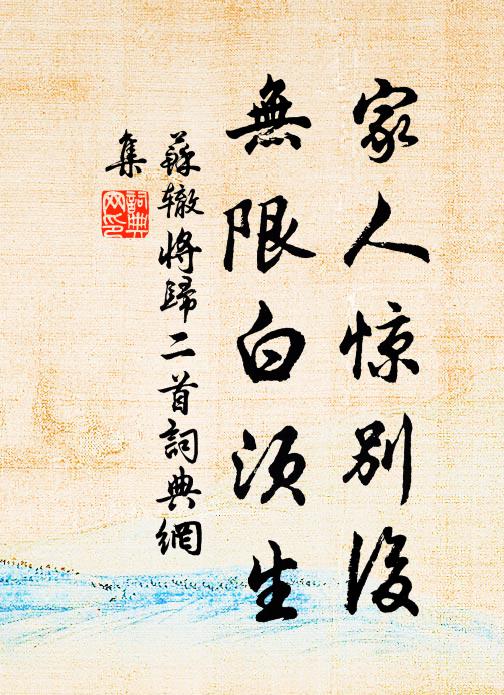 家人惊别後
無限白须生
蘇辙将歸二首詞典網
集
詞典
网印